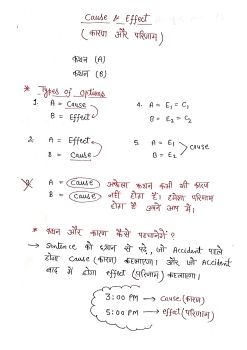 Cause & Effect
(कारण और परिणाम)
कथन (A)
कथन (B)
* Types of Options
1. A = Cause
B = Effect
4. A = E₁ = C₁
B = E₂ = C₂
2. A = Effect
B = Cause
5. A = E₁
B = E₂
> cause
3. A = Cause
B = Cause
अकेला कथन कभी भी कारण
नहीं होता है। हमेशा परिणाम
होता है अपने आप में।
* कथन और कारण कैसे पहचानेंगे ?
→ Sentence को ध्यान से पढ़े, जो Accident पहले
होगा Cause (कारण) कहलाएगा। और जो Accident
बाद में होगा effect (परिणाम) कहलाएगा।
3:00 PM → cause (कारण)
5:00 PM → effect (परिणाम)